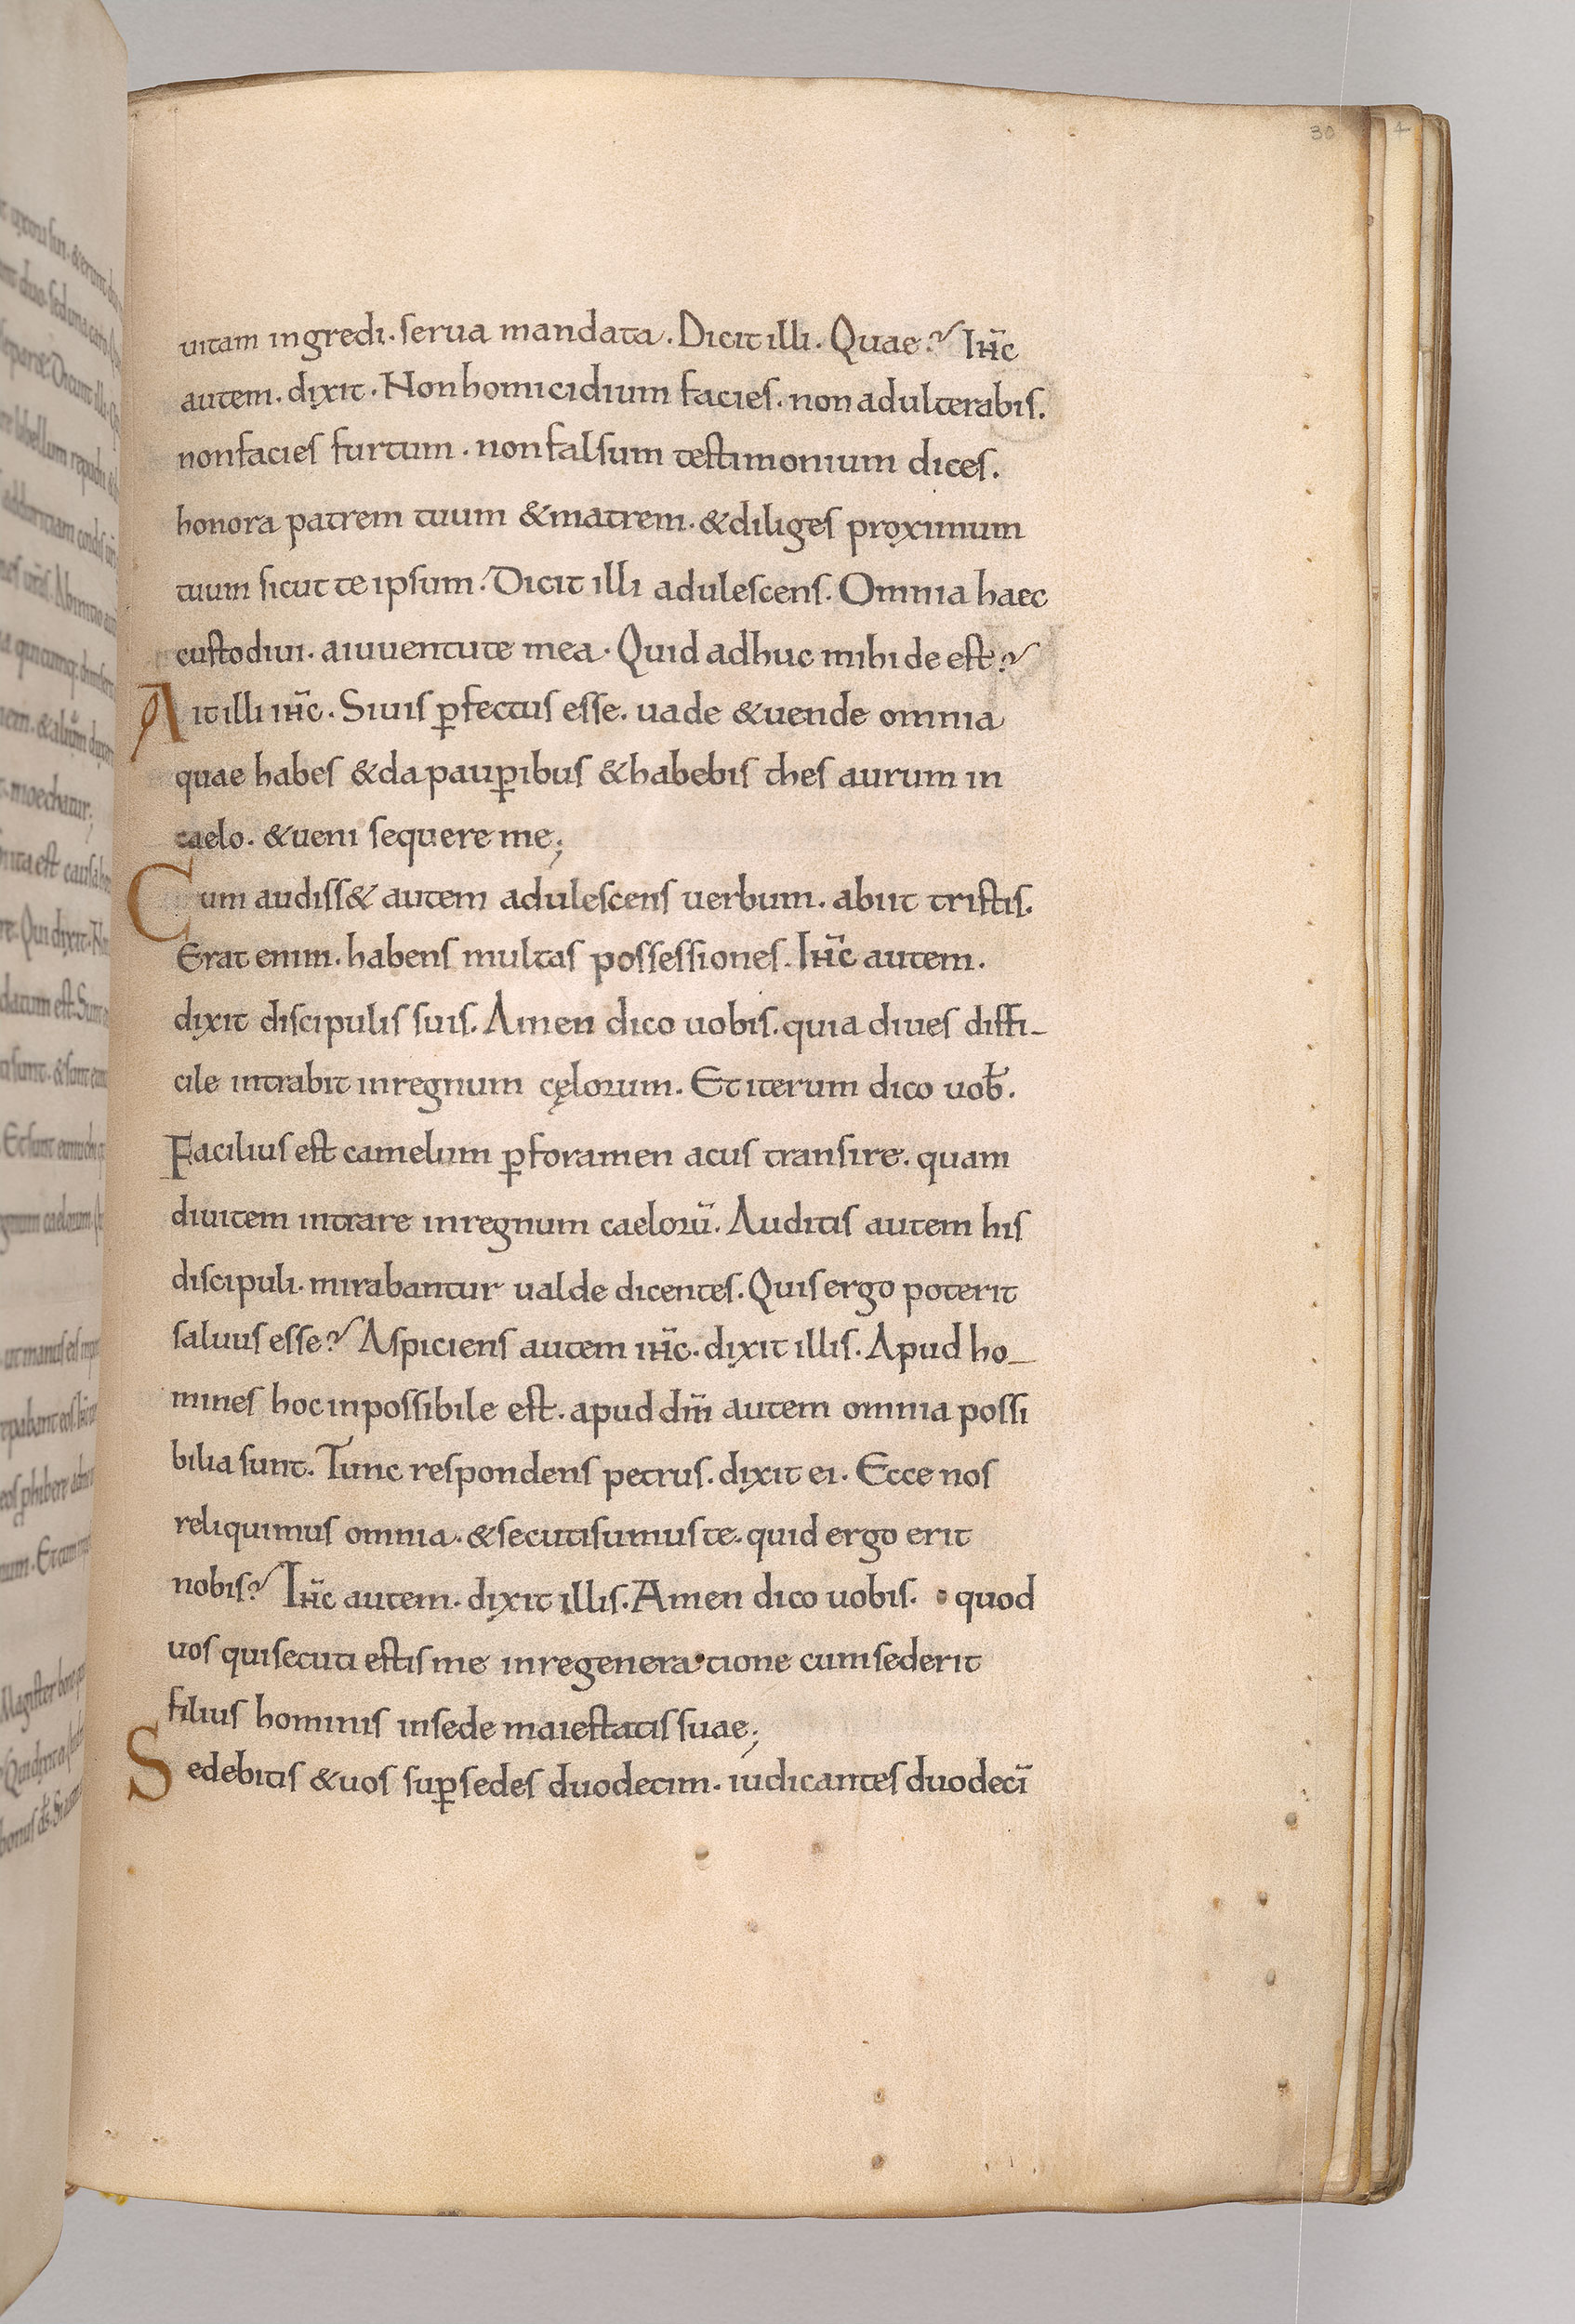 30
4
uitam ingredi. serua mandata. Dicit illi. Quae? Ih̅c
autem. dixit. Non homicidium facies. non adulterabis.
non facies furtum. non falsum testimonium dices.
honora patrem tuum & matrem. & diliges proximum
tuum sicut te ipsum. Dicit illi adulescens. Omnia haec
custodiui. a iuuentute mea. Quid adhuc mihi de est?
Ait illi ih̅c. Si uis p̲fectus esse. uade & uende omnia
quae habes & da paup̲ibus & habebis thes aurum in
caelo. & ueni sequere me;
Cum audiss& autem adulescens uerbum. abiit tristis.
Erat enim. habens multas possessiones. Ih̅c autem.
dixit discipulis suis. Amen dico uobis. quia diues diffi-
cile intrabit in regnum cęlorum. Et iterum dico uob̅.
Facilius est camelum p̲ foramen acus transire. quam
diuitem intrare in regnum caeloru̅. Auditis autem his
discipuli. mirabantur ualde dicentes. Quis ergo poterit
saluus esse? Aspiciens autem ih̅c. dixit illis. Apud ho-
mines hoc inpossibile est. apud dm̅ autem omnia possi
bilia sunt. Tunc respondens petrus. dixit ei. Ecce nos
reliquimus omnia. & secuti sumus te. quid ergo erit
nobis? Ih̅c autem. dixit illis. Amen dico uobis. quod
uos qui secuti estis me in regeneratione cum sederit
filius hominis in sede maiestatis suae;
Sedebitis & uos sup̲ sedes duodecim. iudicantes duodeci̅